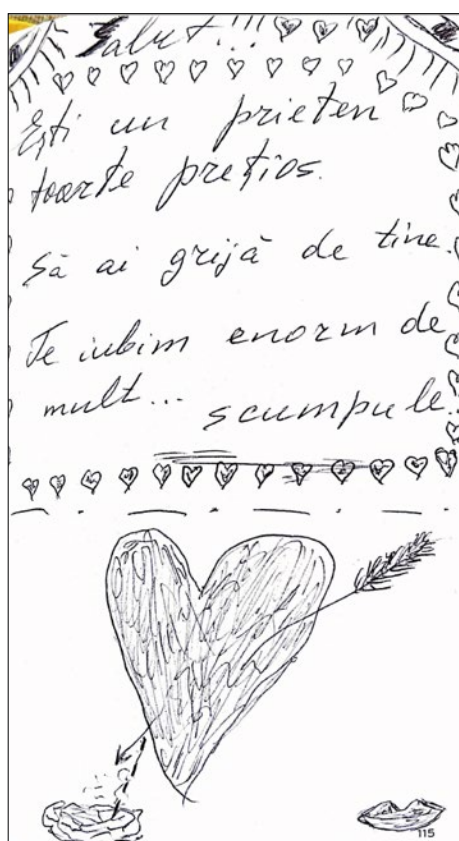 Salut...!!!
Ești un prieten
foarte prețios.
Să ai grijă de tine.
Te iubim enorm de
mult... scumpule..
115